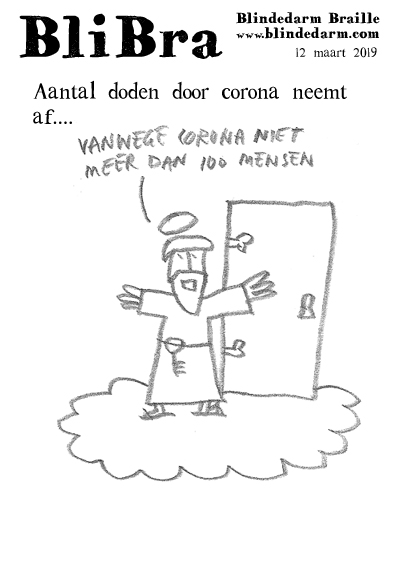 BliBra
Blindedarm Braille
www.blindedarm.com
12 maart 2019
Aantal doden door corona neemt
af....
VANWEGE CORONA NIET
MEER DAN 100 MENSEN